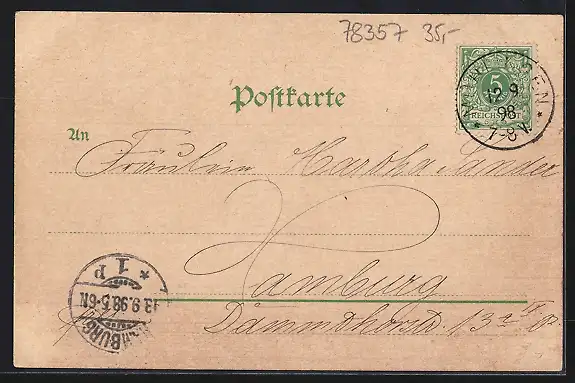 78357 35,-
5
REICHSPOST
12 9
98
* 7-8 V. *
Postkarte
An
Fräulein Martha Sander
Hamburg
Dammthorstr. 13
* 1 P
13.9.98.5-6N
HAMBURG